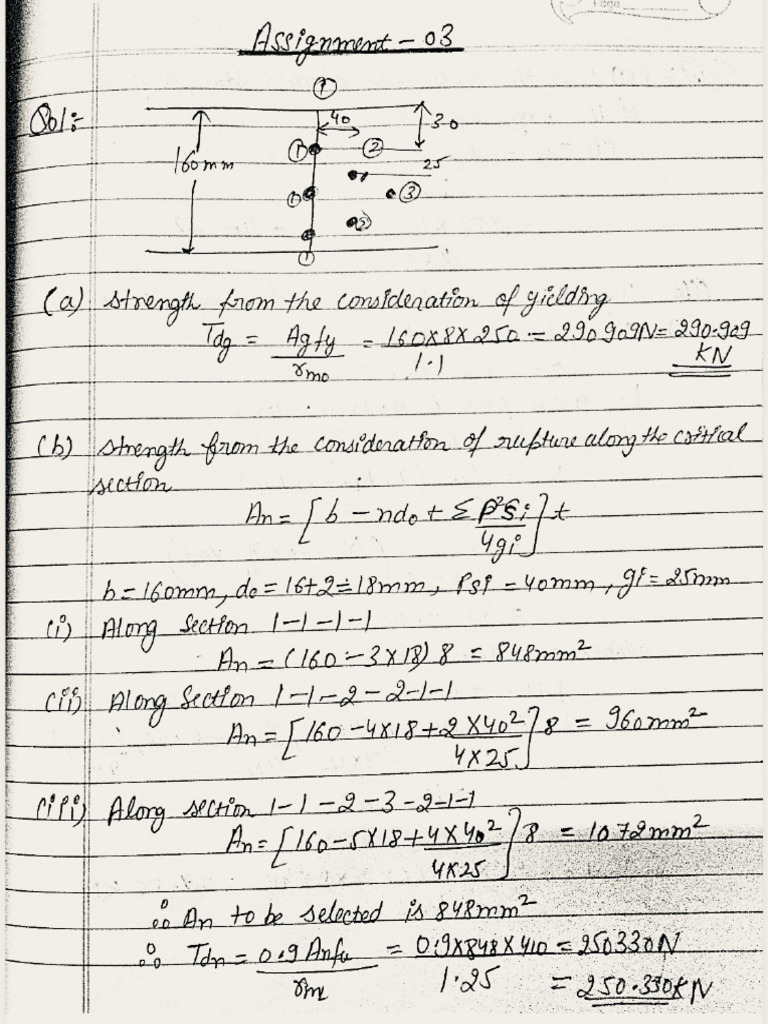 Page
Assignment - 03
Sol:-
1
40
30
1
2
25
160mm
1
3
2
1
(a) strength from the consideration of yielding
Tdg = Agfy / γmo = 160×8×250 / 1.1 = 290909N = 290.909 KN
(b) strength from the consideration of rupture along the critical
section
An = [b - ndo + Σ P²si / 4gi] t
b = 160mm, do = 16+2 = 18mm, Psi = 40mm, gi = 25mm
(i) Along Section 1-1-1-1
An = (160 - 3×18) 8 = 848mm²
(ii) Along Section 1-1-2-2-1-1
An = [160 - 4×18 + 2×40² / 4×25] 8 = 960mm²
(iii) Along section 1-1-2-3-2-1-1
An = [160 - 5×18 + 4×40² / 4×25] 8 = 1072mm²
∴ An to be selected is 848mm²
∴ Tdn = 0.9 Anfu / γm = 0.9×848×410 / 1.25 = 250330N
= 250.330KN